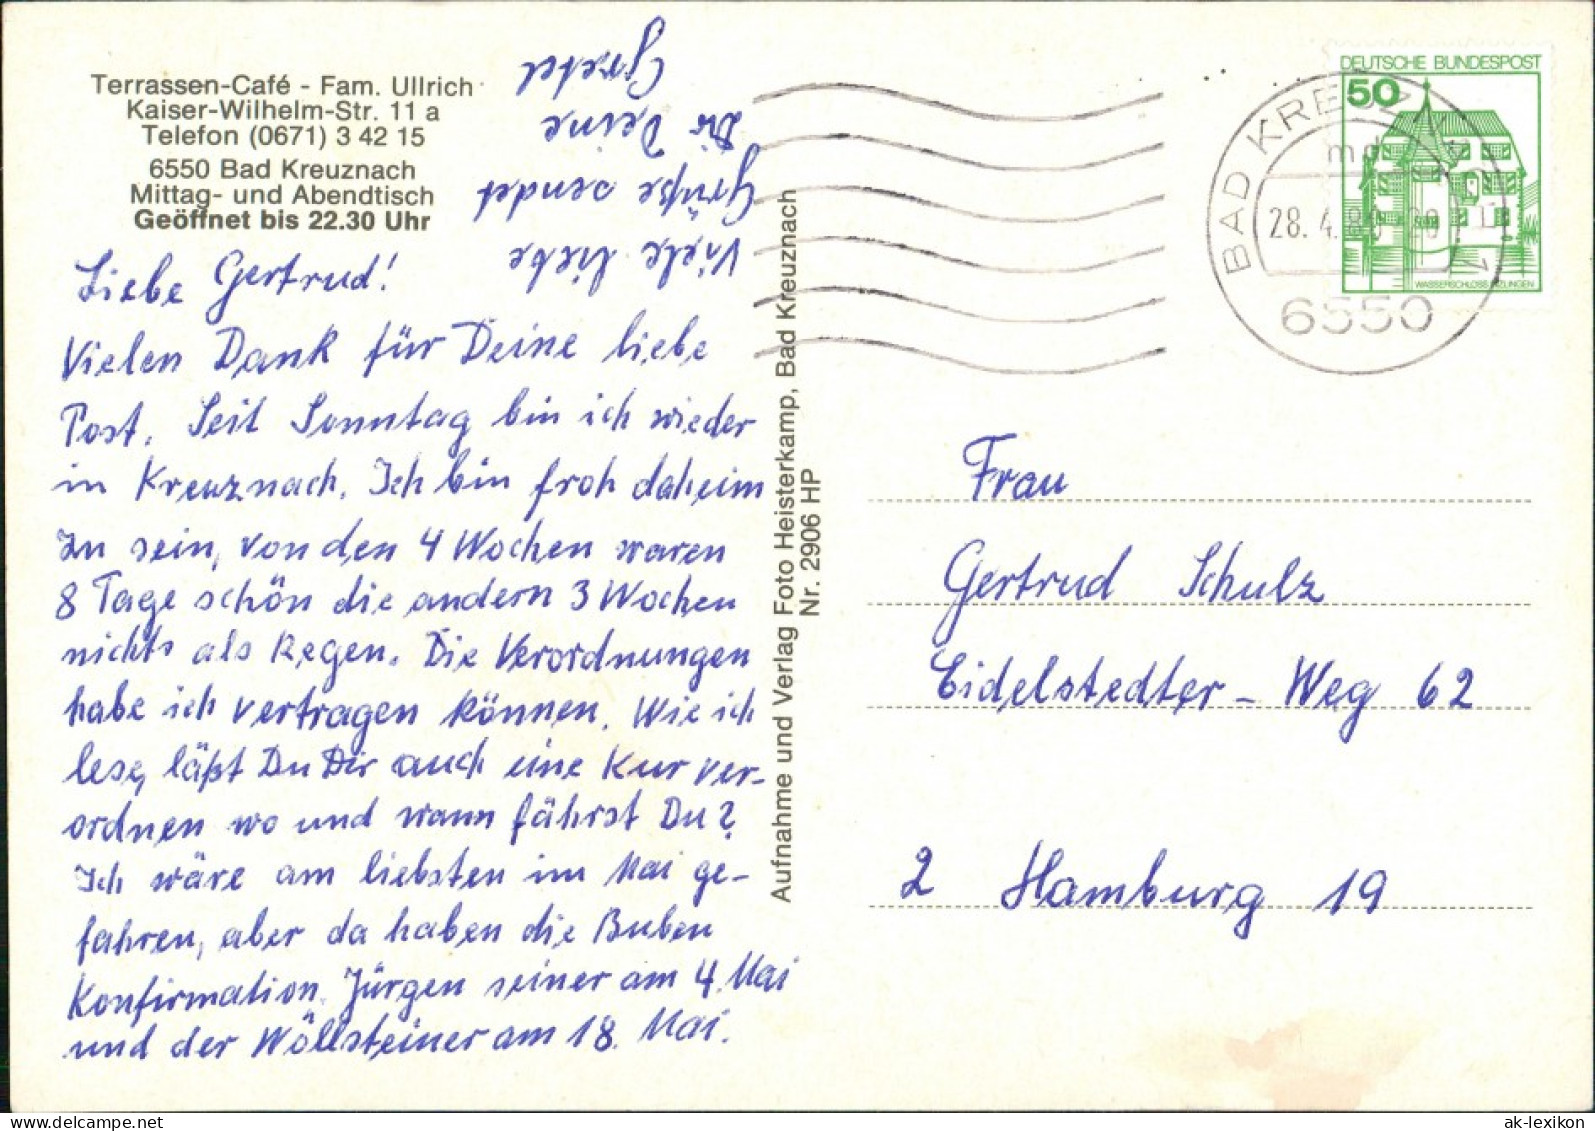 Terrassen-Café - Fam. Ullrich
Kaiser-Wilhelm-Str. 11 a
Telefon (0671) 3 42 15
6550 Bad Kreuznach
Mittag- und Abendtisch
Geöffnet bis 22.30 Uhr
Liebe Gertrud!
Vielen Dank für Deine liebe
Post. Seit Sonntag bin ich wieder
in Kreuznach. Ich bin froh daheim
zu sein, von den 4 Wochen waren
8 Tage schön die andern 3 Wochen
nichts als Regen. Die Verordnungen
habe ich vertragen können. Wie ich
lese, läßt Du Dir auch eine Kur ver-
ordnen wo und wann fährst Du?
Ich wäre am liebsten im Mai ge-
fahren, aber da haben die Buben
Konfirmation. Jürgen seiner am 4. Mai
und der Wöllsteiner am 18. Mai.
Viele liebe
Grüße sendet
Dir Deine
Gretel
Aufnahme und Verlag Foto Heisterkamp, Bad Kreuznach
Nr. 2906 HP
DEUTSCHE BUNDESPOST
50
WASSERSCHLOSS INZLINGEN
BAD KREUZNACH
md
28. 4. 80
6550
Frau
Gertrud Schulz
Eidelstedter-Weg 62
2 Hamburg 19
ak-lexikon